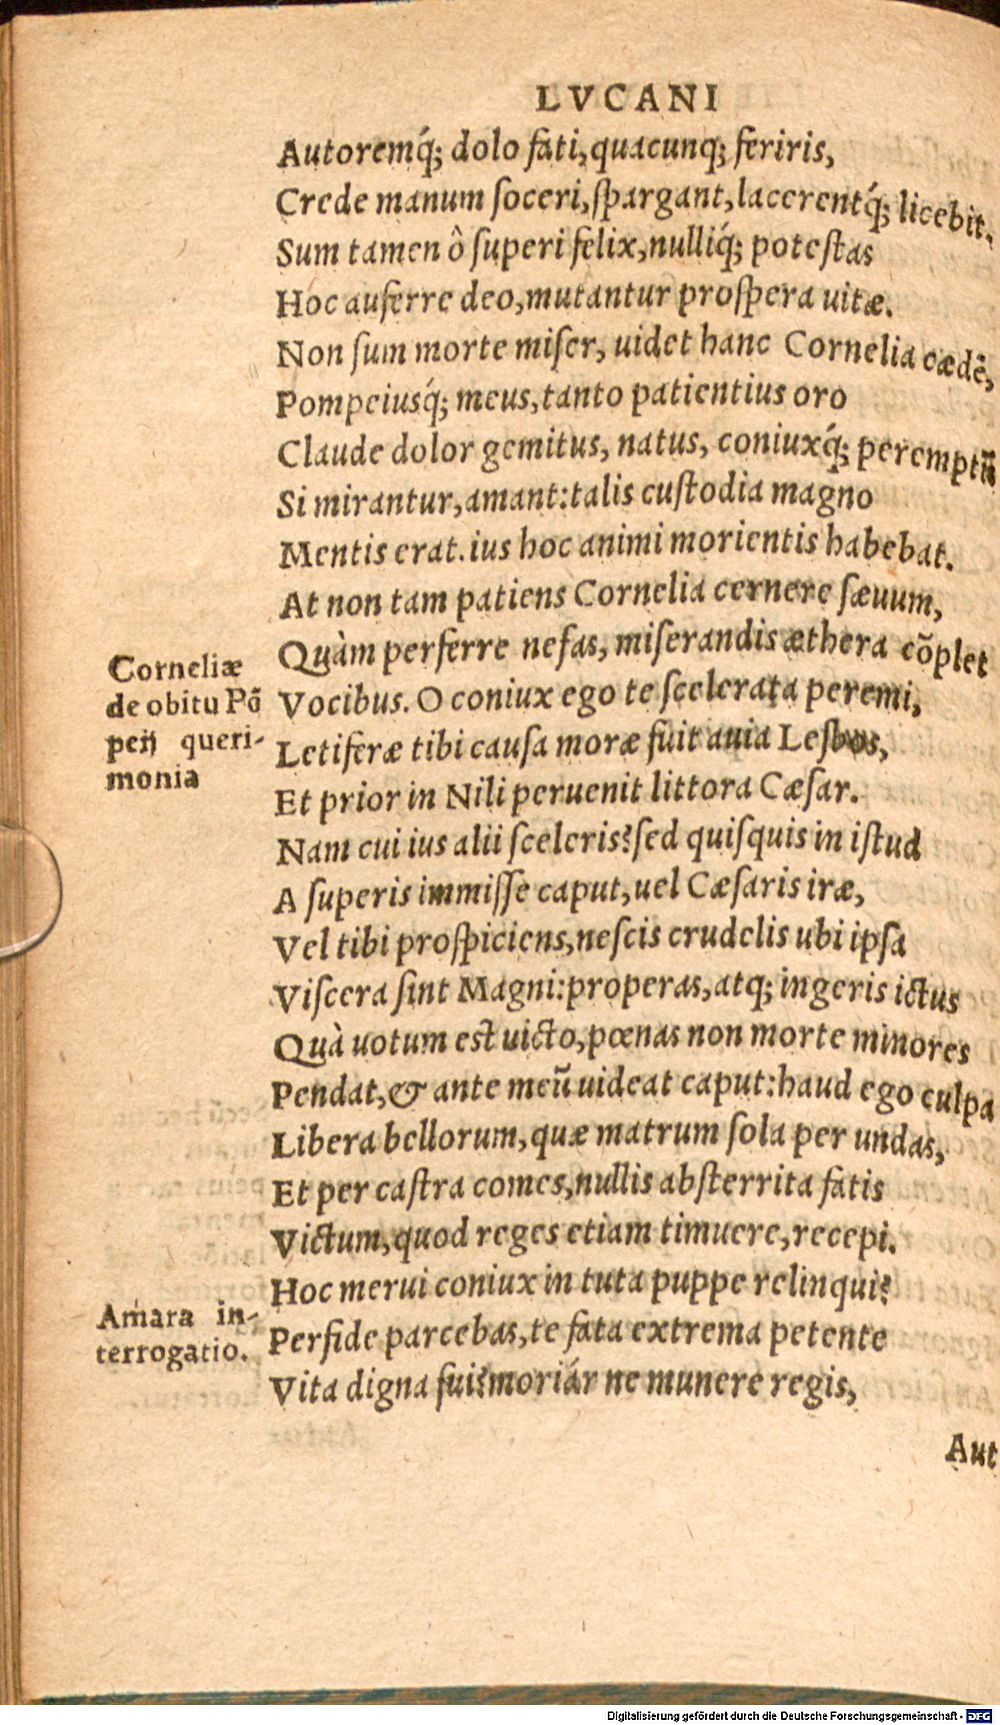 LVCANI
Autoremq́; dolo fati, quacunq; feriris,
Crede manum soceri, spargant, lacerentq́; licebit.
Sum tamen ô superi felix, nulliq́; potestas
Hoc auferre deo, mutantur prospera uitæ.
Non sum morte miser, uidet hanc Cornelia cædẽ,
Pompeiusq́; meus, tanto patientius oro
Claude dolor gemitus, natus, coniuxq́; peremptũ
Si mirantur, amant: talis custodia magno
Mentis erat. ius hoc animi morientis habebat.
At non tam patiens Cornelia cernere sæuum,
Quàm perferre nefas, miserandis æthera cõplet
Vocibus. O coniux ego te scelerata peremi,
Letiferæ tibi causa moræ fuit auia Lesbos,
Et prior in Nili peruenit littora Cæsar.
Nam cui ius alii sceleris? sed quisquis in istud
A superis immisse caput, uel Cæsaris iræ,
Vel tibi prospiciens, nescis crudelis ubi ipsa
Viscera sint Magni: properas, atq; ingeris ictus
Quà uotum est uicto, pœnas non morte minores
Pendat, & ante meũ uideat caput: haud ego culpa
Libera bellorum, quæ matrum sola per undas,
Et per castra comes, nullis absterrita fatis
Victum, quod reges etiam timuere, recepi.
Hoc merui coniux in tuta puppe relinqui?
Perfide parcebas, te fata extrema petente
Vita digna fui? moriár ne munere regis,
Aut
Corneliæ
de obitu Põ
peij queri-
monia
Amara in-
terrogatio.
Digitalisierung gefördert durch die Deutsche Forschungsgemeinschaft - DFG